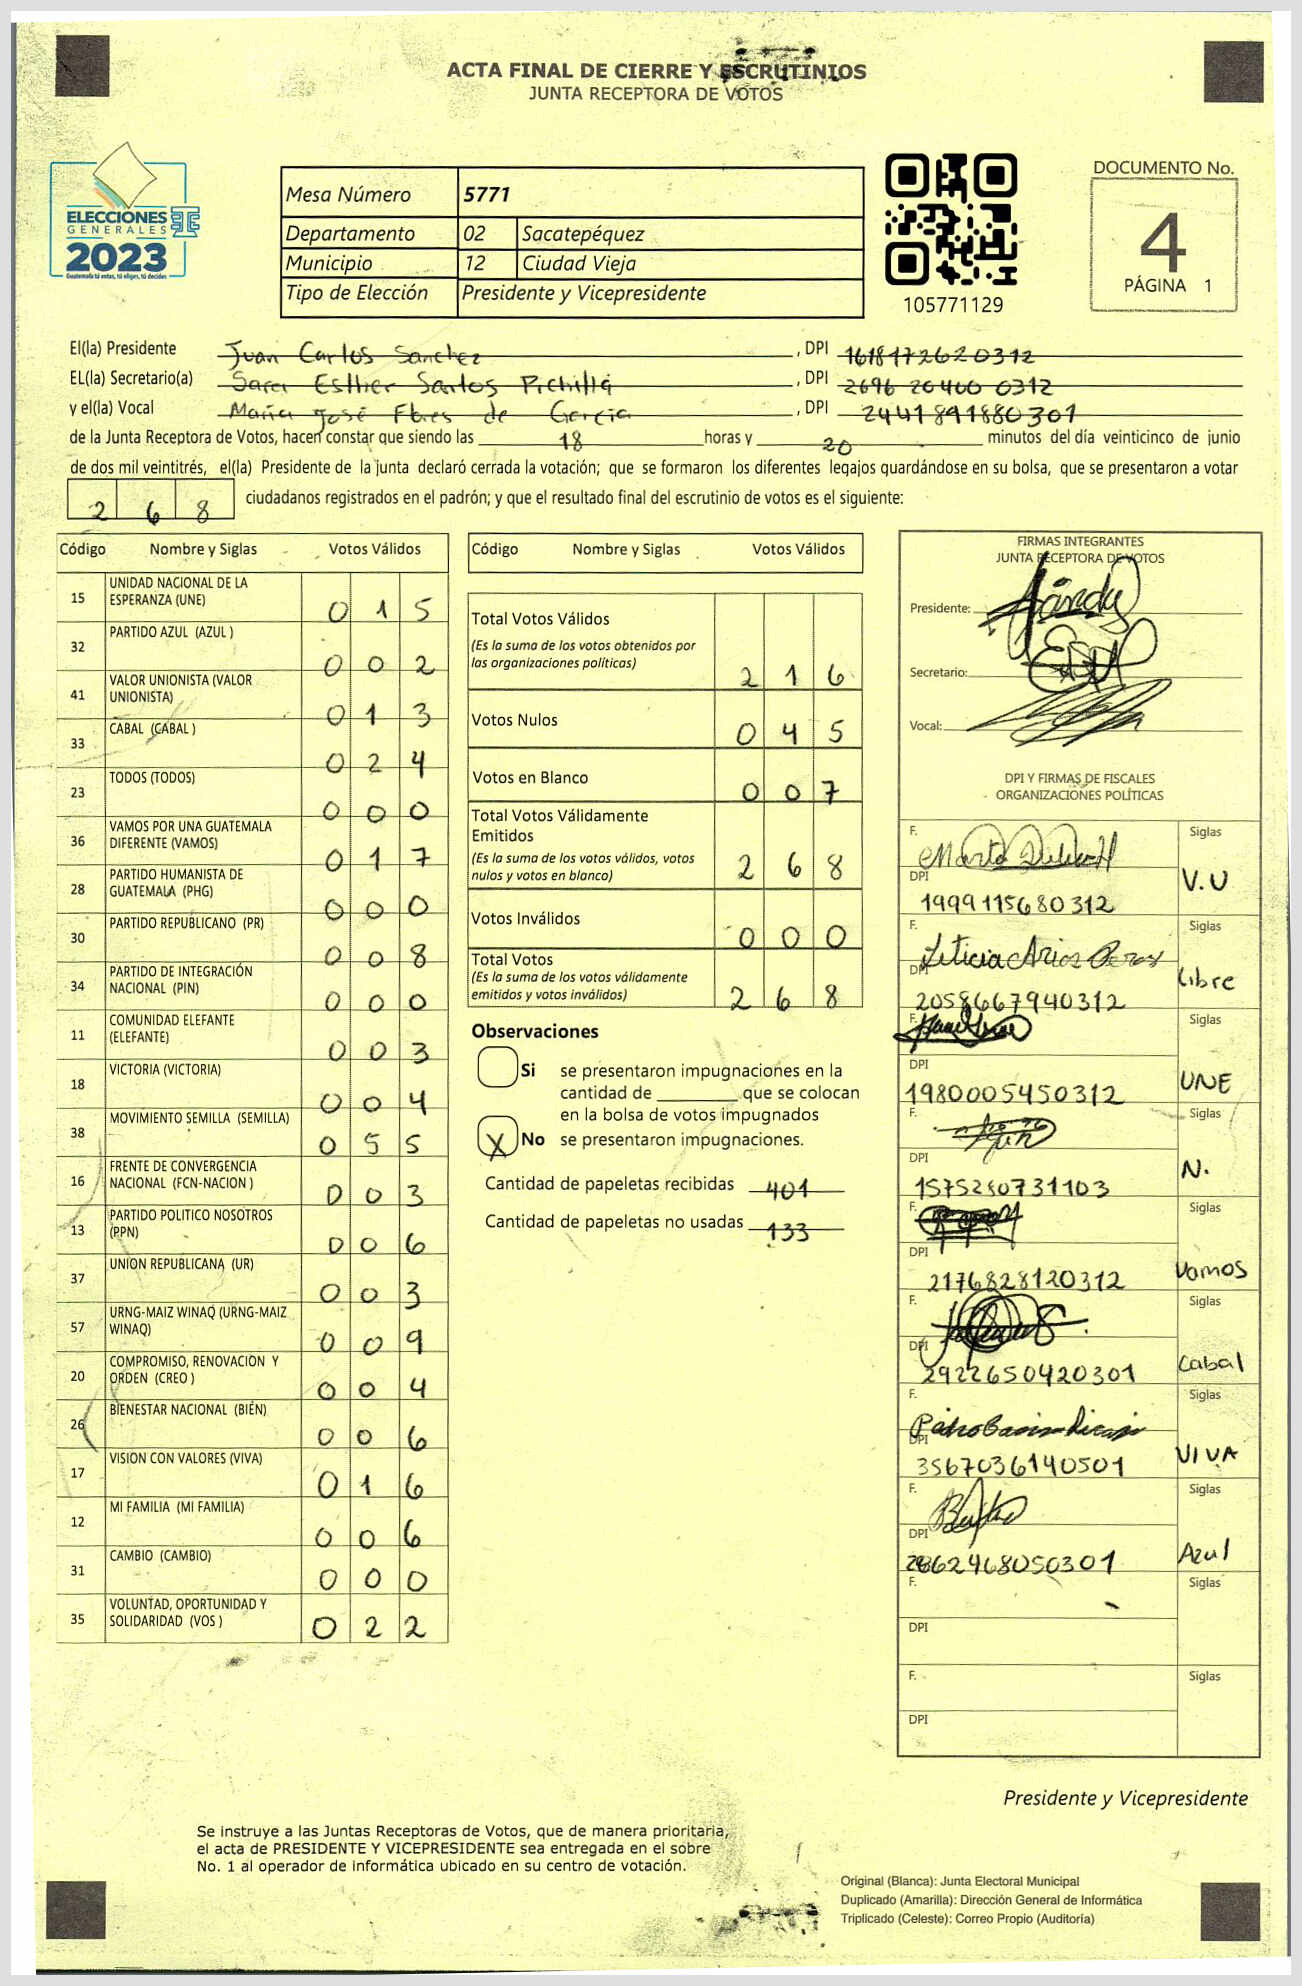 ACTA FINAL DE CIERRE Y ESCRUTINIOS
JUNTA RECEPTORA DE VOTOS
ELECCIONES
GENERALES
2023
Guatemala tú votas, tú eliges, tú decides
Mesa Número 5771
Departamento 02 Sacatepéquez
Municipio 12 Ciudad Vieja
Tipo de Elección Presidente y Vicepresidente
105771129
DOCUMENTO No.
4
PÁGINA 1
El(la) Presidente Juan Carlos Sanchez, DPI 1618172620312
EL(la) Secretario(a) Sara Esther Santos Pichillá, DPI 2696 20400 0312
y el(la) Vocal María José Flores de García, DPI 2441891880301
de la Junta Receptora de Votos, hacen constar que siendo las 18 horas y 20 minutos del día veinticinco de junio
de dos mil veintitrés, el(la) Presidente de la junta declaró cerrada la votación; que se formaron los diferentes legajos guardándose en su bolsa, que se presentaron a votar
268 ciudadanos registrados en el padrón; y que el resultado final del escrutinio de votos es el siguiente:
Código Nombre y Siglas Votos Válidos
15 UNIDAD NACIONAL DE LA ESPERANZA (UNE) 015
32 PARTIDO AZUL (AZUL ) 002
41 VALOR UNIONISTA (VALOR UNIONISTA) 013
33 CABAL (CABAL ) 024
23 TODOS (TODOS) 000
36 VAMOS POR UNA GUATEMALA DIFERENTE (VAMOS) 017
28 PARTIDO HUMANISTA DE GUATEMALA (PHG) 000
30 PARTIDO REPUBLICANO (PR) 008
34 PARTIDO DE INTEGRACIÓN NACIONAL (PIN) 000
11 COMUNIDAD ELEFANTE (ELEFANTE) 003
18 VICTORIA (VICTORIA) 004
38 MOVIMIENTO SEMILLA (SEMILLA) 055
16 FRENTE DE CONVERGENCIA NACIONAL (FCN-NACION ) 003
13 PARTIDO POLITICO NOSOTROS (PPN) 006
37 UNION REPUBLICANA (UR) 003
57 URNG-MAIZ WINAQ (URNG-MAIZ WINAQ) 009
20 COMPROMISO, RENOVACION Y ORDEN (CREO ) 004
26 BIENESTAR NACIONAL (BIEN) 006
17 VISION CON VALORES (VIVA) 016
12 MI FAMILIA (MI FAMILIA) 006
31 CAMBIO (CAMBIO) 000
35 VOLUNTAD, OPORTUNIDAD Y SOLIDARIDAD (VOS ) 022
Código Nombre y Siglas Votos Válidos
Total Votos Válidos 216
(Es la suma de los votos obtenidos por
las organizaciones políticas)
Votos Nulos 045
Votos en Blanco 007
Total Votos Válidamente
Emitidos 268
(Es la suma de los votos válidos, votos
nulos y votos en blanco)
Votos Inválidos 000
Total Votos 268
(Es la suma de los votos válidamente
emitidos y votos inválidos)
Observaciones
Si se presentaron impugnaciones en la
cantidad de ________ que se colocan
en la bolsa de votos impugnados
X No se presentaron impugnaciones.
Cantidad de papeletas recibidas 401
Cantidad de papeletas no usadas 133
FIRMAS INTEGRANTES
JUNTA RECEPTORA DE VOTOS
Presidente:
Secretario:
Vocal:
DPI Y FIRMAS DE FISCALES
ORGANIZACIONES POLÍTICAS
F. Siglas
DPI V.U
1999115680312
F. Leticia Arios Siglas
DPI Libre
2058667940312
F. Siglas
DPI UNE
1980005450312
F. Siglas
DPI N.
1575280731103
F. Siglas
DPI Vamos
2176828120312
F. Siglas
DPI Cabal
2922650420301
F. Siglas
DPI VIVA
3567036140501
F. Siglas
DPI Azul
2862468050301
F. Siglas
DPI
F. Siglas
DPI
Presidente y Vicepresidente
Se instruye a las Juntas Receptoras de Votos, que de manera prioritaria,
el acta de PRESIDENTE Y VICEPRESIDENTE sea entregada en el sobre
No. 1 al operador de informática ubicado en su centro de votación.
Original (Blanca): Junta Electoral Municipal
Duplicado (Amarilla): Dirección General de Informática
Triplicado (Celeste): Correo Propio (Auditoría)